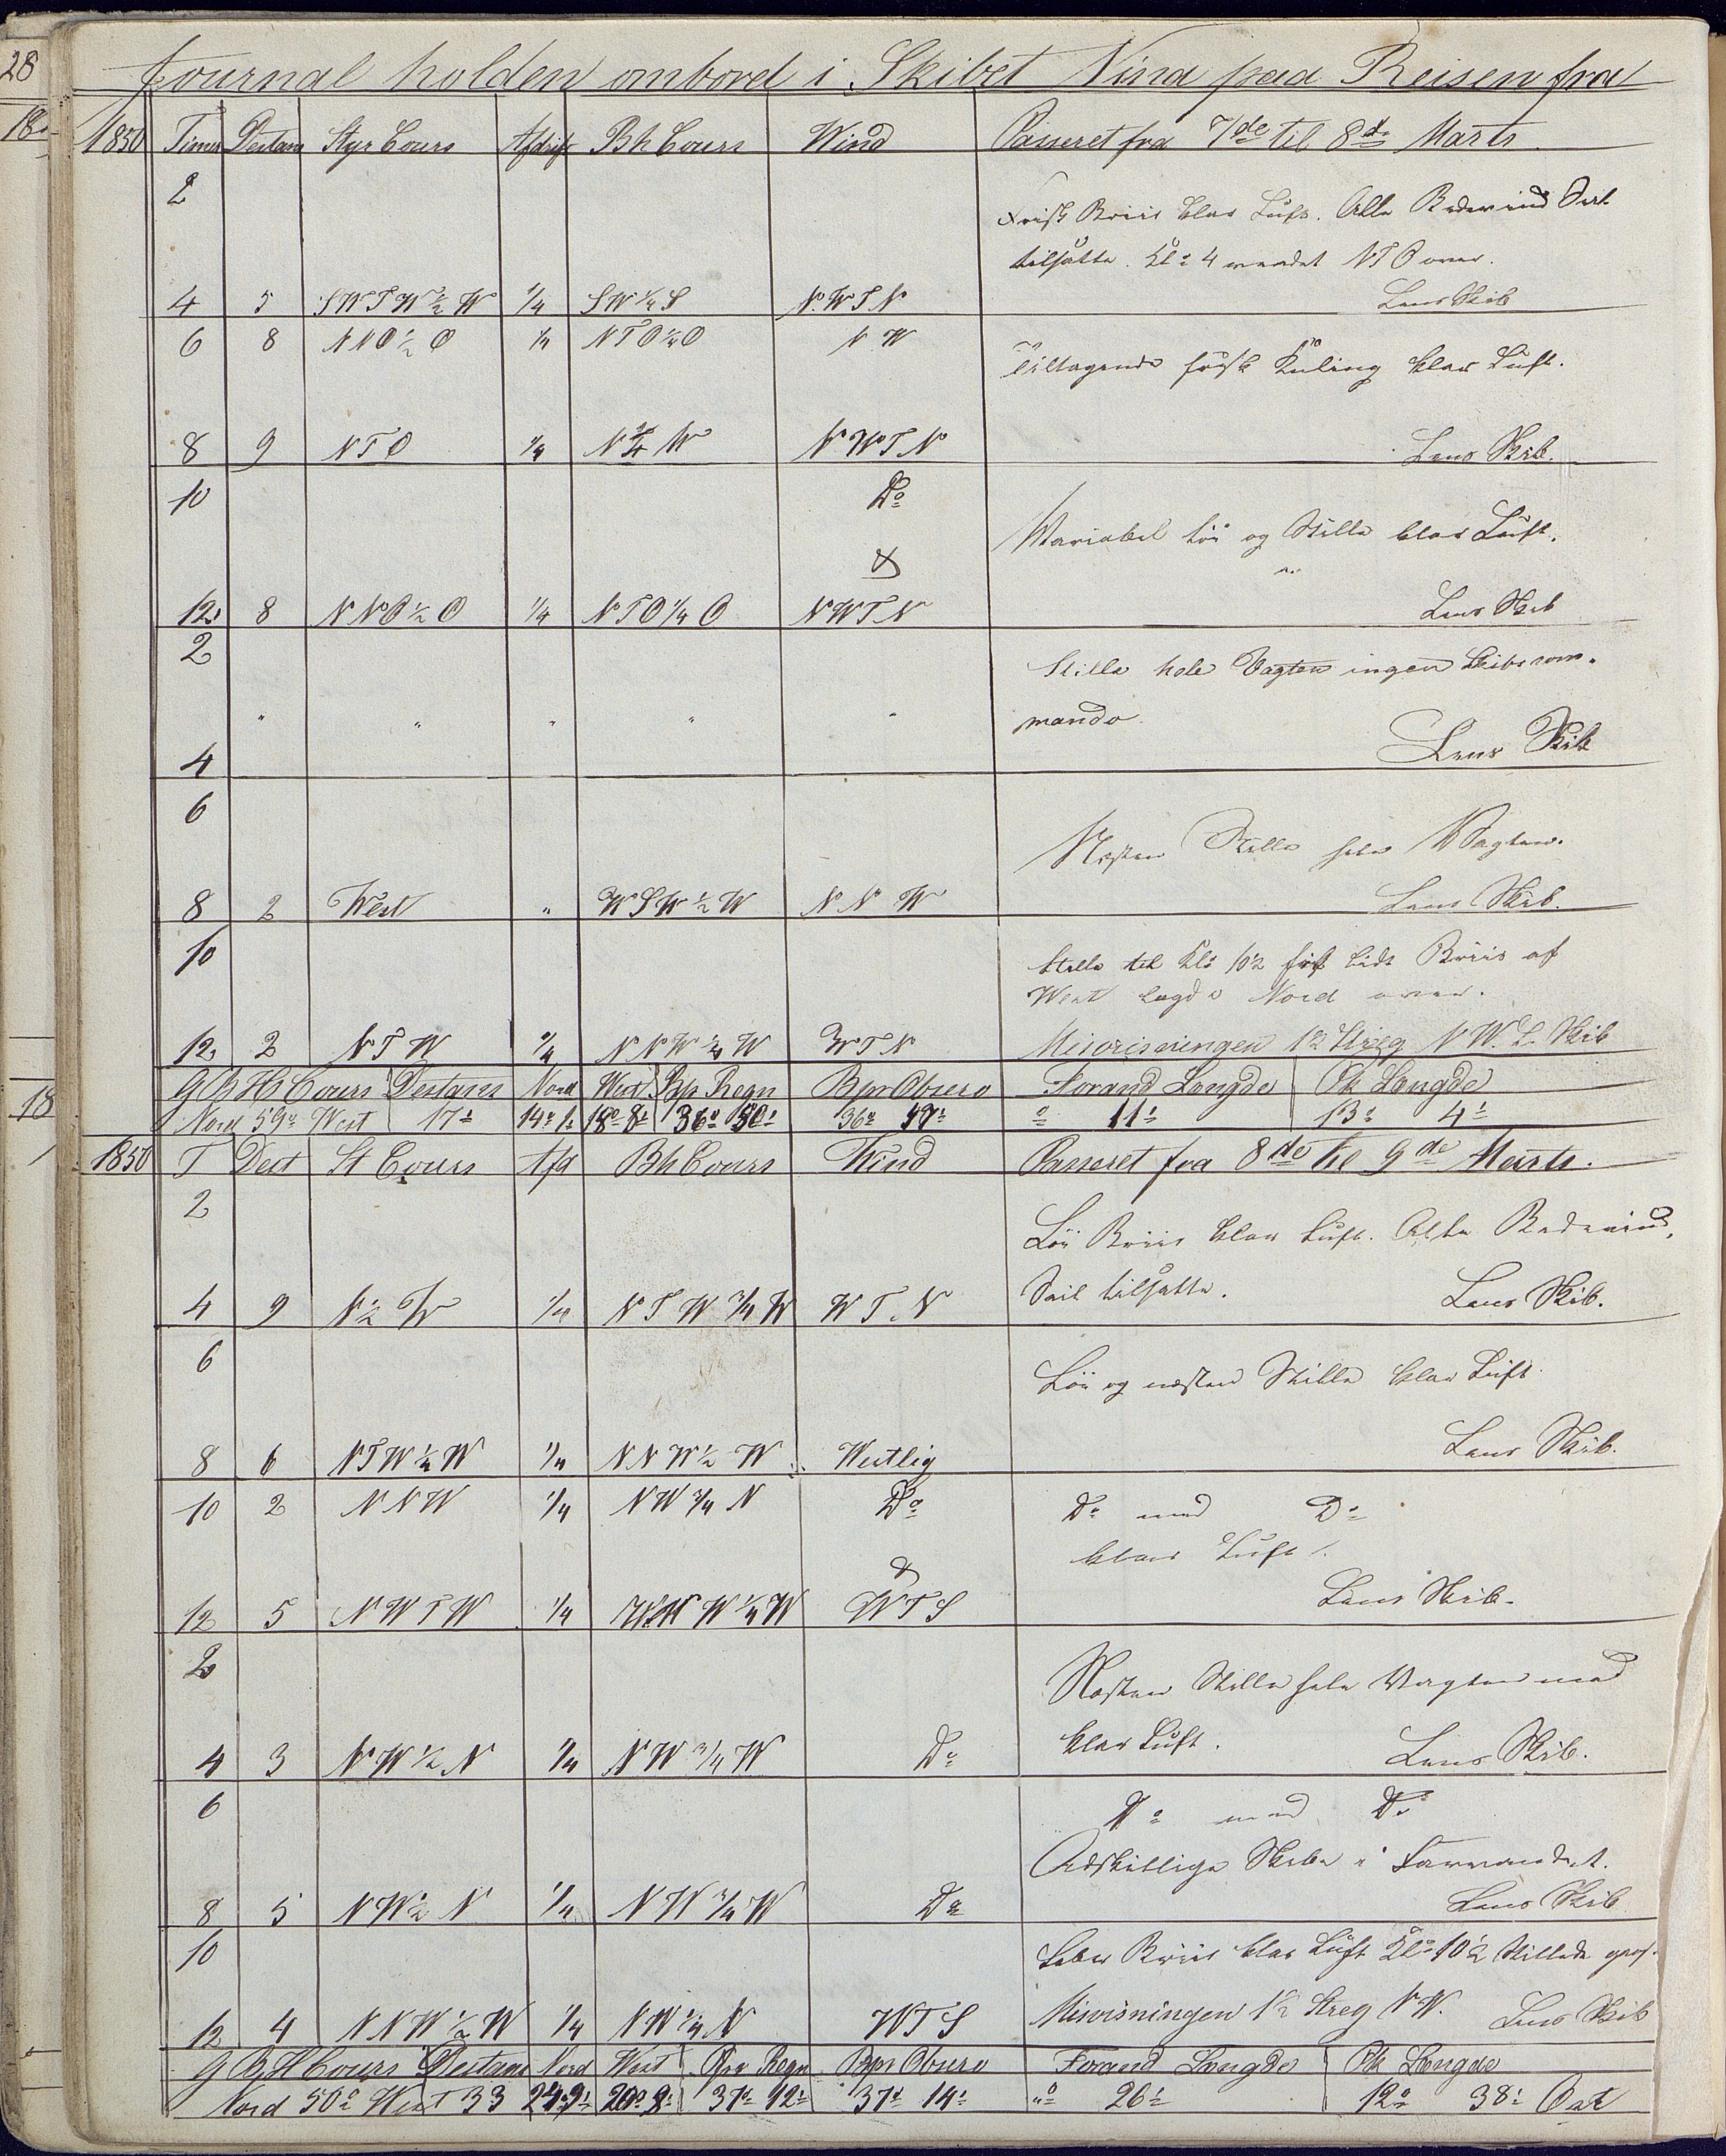 28
Journal holden ombord i Skibet Nina paa Reisen fra
18
1850 Timer Destans Styr Cours Afdrift Bh Cours Wind Passeret fra 7de til 8de Marts
2
Frisk Briis klar Luft. Alle Bidevind Seil
tilsatte. Klo 4 vendet NTO over.
4 5 SWTW½W ¼ SW¼S N.WTN Lens Skib
6 8 NNO½O ¼ NTO¼O NW
Tiltagende frisk Kuling klar Luft.
8 9 NTO ¼ N¾W NWTN Lens Skib.
10 Do
Wariabel Löi og Stille klar Luft.
&
12 8 NNO½O ¼ NTO¼O NWTN Lens Skib
2
Stille hele Vagten ingen Skibscom-
" " " " "
mando
4 Lens Skib
6
Næsten Stille hele Wagten.
8 2 West " WSW½W NNW Lens Skib.
10
Stille til Klo 10½ fik lidt Briis af
West lagde Nord over.
12 2 NTW ¼ NNW¼W WTN Misvisningen 1½ Streg NW. L. Skib
G B H Cours Destans Nord West Bpr Regn Bpr Observ Forand Længde Pk Længde
Nord 59o West 17- 14- 1- 36o 50- 36o " 11- 13o 4-
18
1850 T Dest St Cours Afd Bh Cours Wind Passeret fra 8de til 9de Marts.
2
Löi Briis klar Luft. Alle Bidevind
Seil tilsatte. Lens Skib.
4 9 N½W ¼ NTW¾W WT.N
6
Löi og næsten Stille klar Luft
8 6 NTW¼W ¼ NNW½W Westlig Lens Skib.
10 2 NNW ¼ NW¾N Do Do med Do
klar Luft.
&
12 5 NWTW ¼ WTS Lens Skib.
2
Næsten Stille hele Vagten med
klar Luft. Lens Skib.
4 3 NW½N ¼ NW¾W Do
6 Do med Do
Adskillige Skibe i Farvandet.
8 5 NW½N ¼ NW¾W Do Lens Skib
10
Laber Briis klar Luft Klo 10½ Stillede
12 4 NNW½W ¼ NW¼N WTS Misvisningen 1½ Streg NW. Lens Skib
G B H Cours Destans Nord West Bpr Regn Bpr Observ Forand Længde Pk Længde
Nord 50o West 33 37o 12- 37o 14- "o 26- 12o 38- Ost